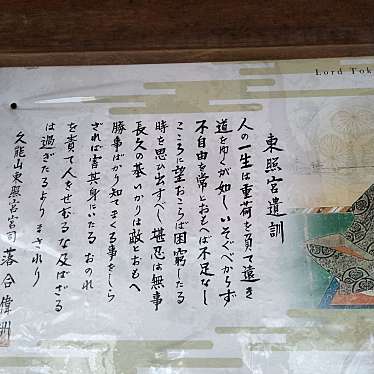 Lord Tok
東照宮遺訓
人の一生は重荷を負て遠き
道をゆくが如し いそぐべからず
不自由を常とおもへば不足なし
こころに望おこらば困窮したる
時を思ひ出すべし 堪忍は無事
長久の基 いかりは敵とおもへ
勝事ばかり知てまくる事をしら
ざれば害其身にいたる おのれ
を責て人をせむるな 及ばざる
は過ぎたるより まされり
久能山東照宮宮司 落合偉洲